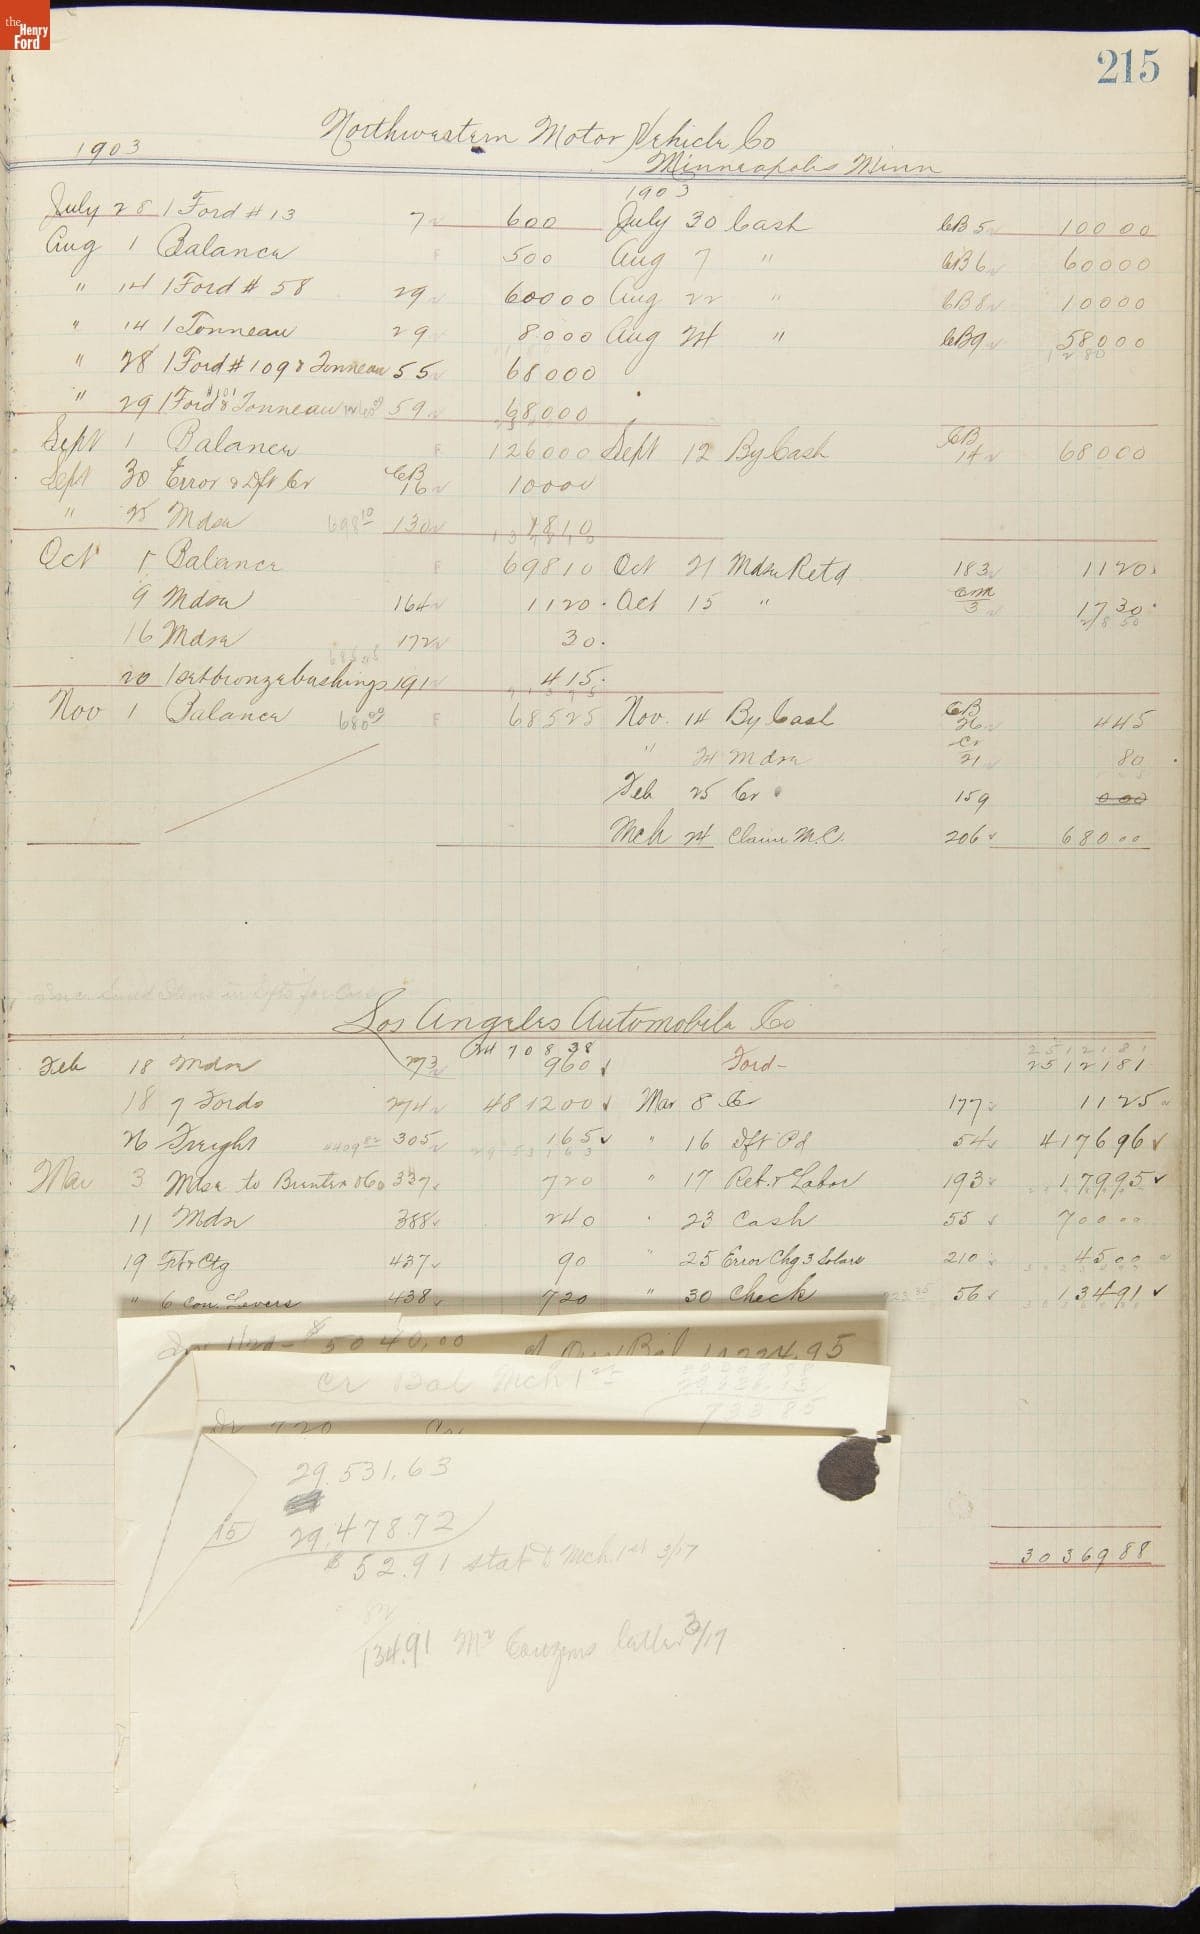 the Henry Ford
215
Northwestern Motor Vehicle Co
1903 Minneapolis Minn
1903
July 28 1 Ford # 13 7 600 July 30 Cash CB 5 100 00
Aug 1 Balance F 500 Aug 7 " CB 6 600 00
" 14 1 Ford # 58 29 600 00 Aug 22 " CB 8 100 00
" 14 1 Tonneau 29 80 00 Aug 24 " CB 9 580 00
" 28 1 Ford # 109 & Tonneau 55 680 00
" 29 1 Ford & Tonneau 59 680 00
Sept 1 Balance F 1260 00 Sept 12 By Cash CB 14 680 00
Sept 30 Error & Dft Cr CB 16 100 00
" 25 Mdse 698 10 130 18 10
Oct 1 Balance F 698 10 Oct 21 Mdse Retd 183 11 20
9 Mdse 164 11 20 Oct 15 " 3 17 30
16 Mdse 172 30
20 1 set bronze bushings 191 4 15
Nov 1 Balance 680 00 F 685 25 Nov. 14 By Cash CB 26 4 45
" 24 Mdse Cr 21 80
Feb 25 Cr 159
Mch 24 Claim M.C. 206 680 00
Los Angeles Automobile Co
708 38 25121 81
Feb 18 Mdse 273 9 60 Ford- 25121 81
18 7 Fords 274 4812 00 Mar 8 Cr 177 11 25
26 Freight 4409 82 305 1 65 " 16 Dft Pd 54 4176 96
Mar 3 Mdse to 337 7 20 " 17 Ret. & Labor 193 179 95
11 Mdse 388 2 40 " 23 Cash 55 700 00
19 Frt & Ctg 437 90 " 25 Error Chg 3 210 45 00
" 6 Con. Levers 438 7 20 " 30 Check 56 134 91
5040.00
Cr Bal Mch 1st
733 85
29,531.63
15 29,478.72
$52.91 stat Mch. 1st 3/17
134.91 Mr Couzens letter 3/17
30369 88